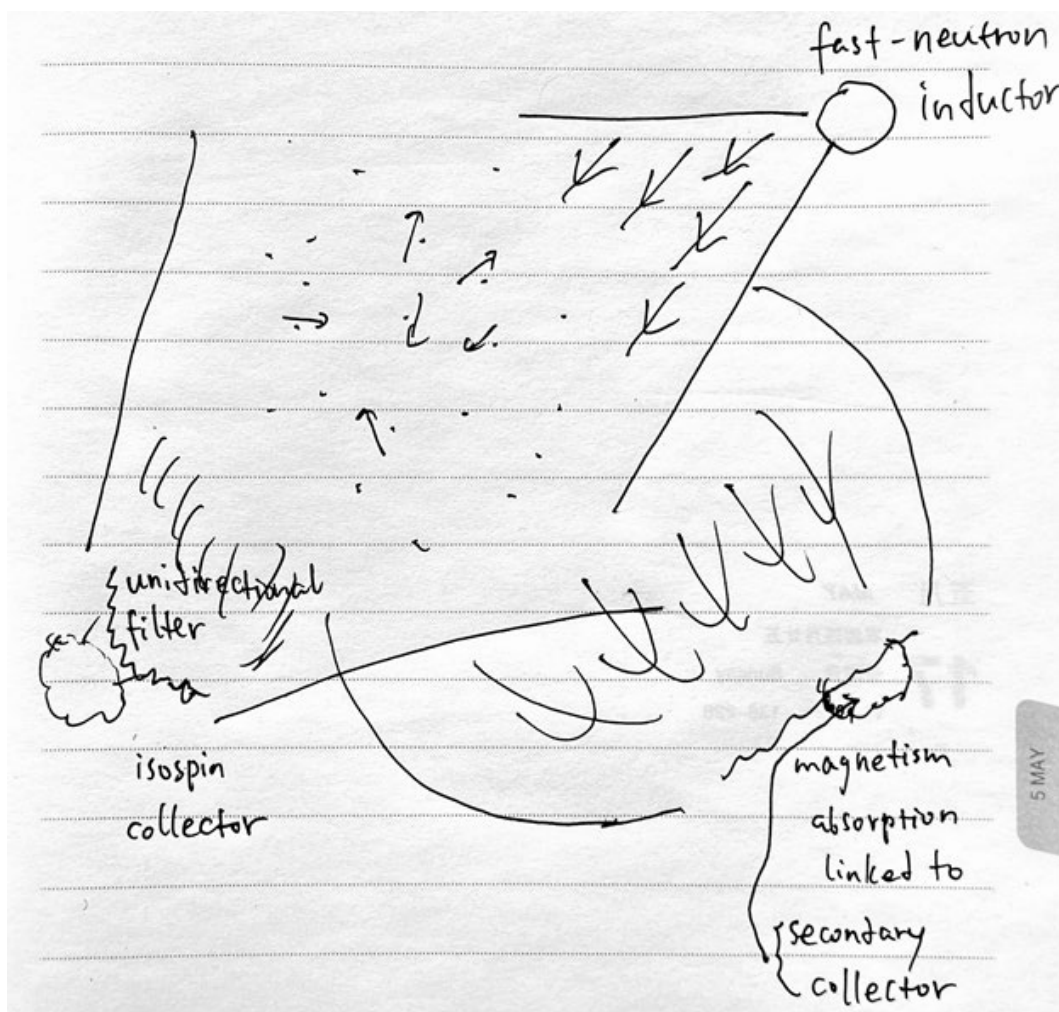 fast-neutron
inductor
unidirectional
filter
isospin
collector
magnetism
absorption
linked to
secondary
collector
5 MAY